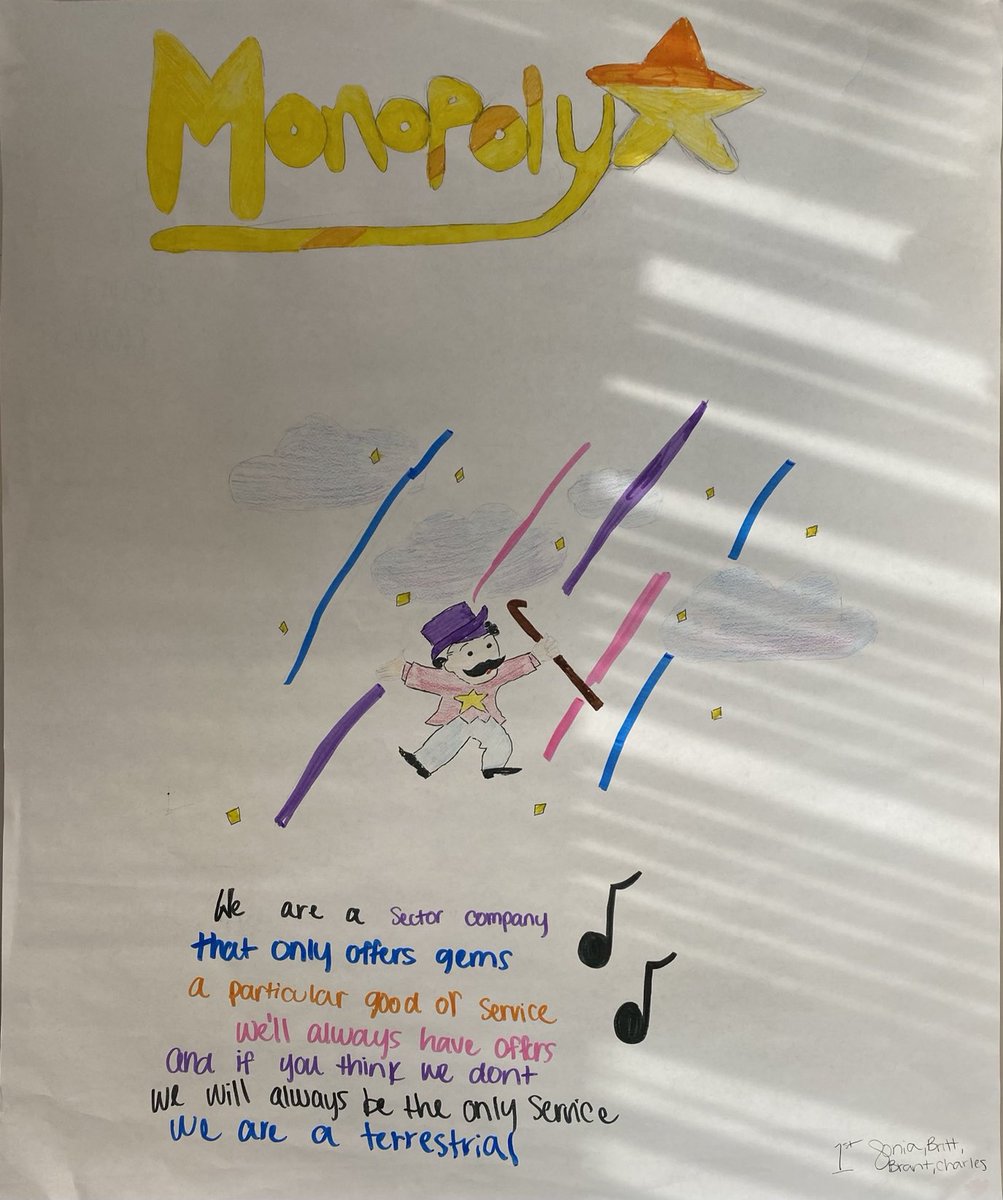 Monopoly
We are a Sector company
that only offers gems
a particular good or service
we'll always have offers
and if you think we dont
we will always be the only service
we are a terrestrial
1st Sonia, Britt,
Brant, Charles